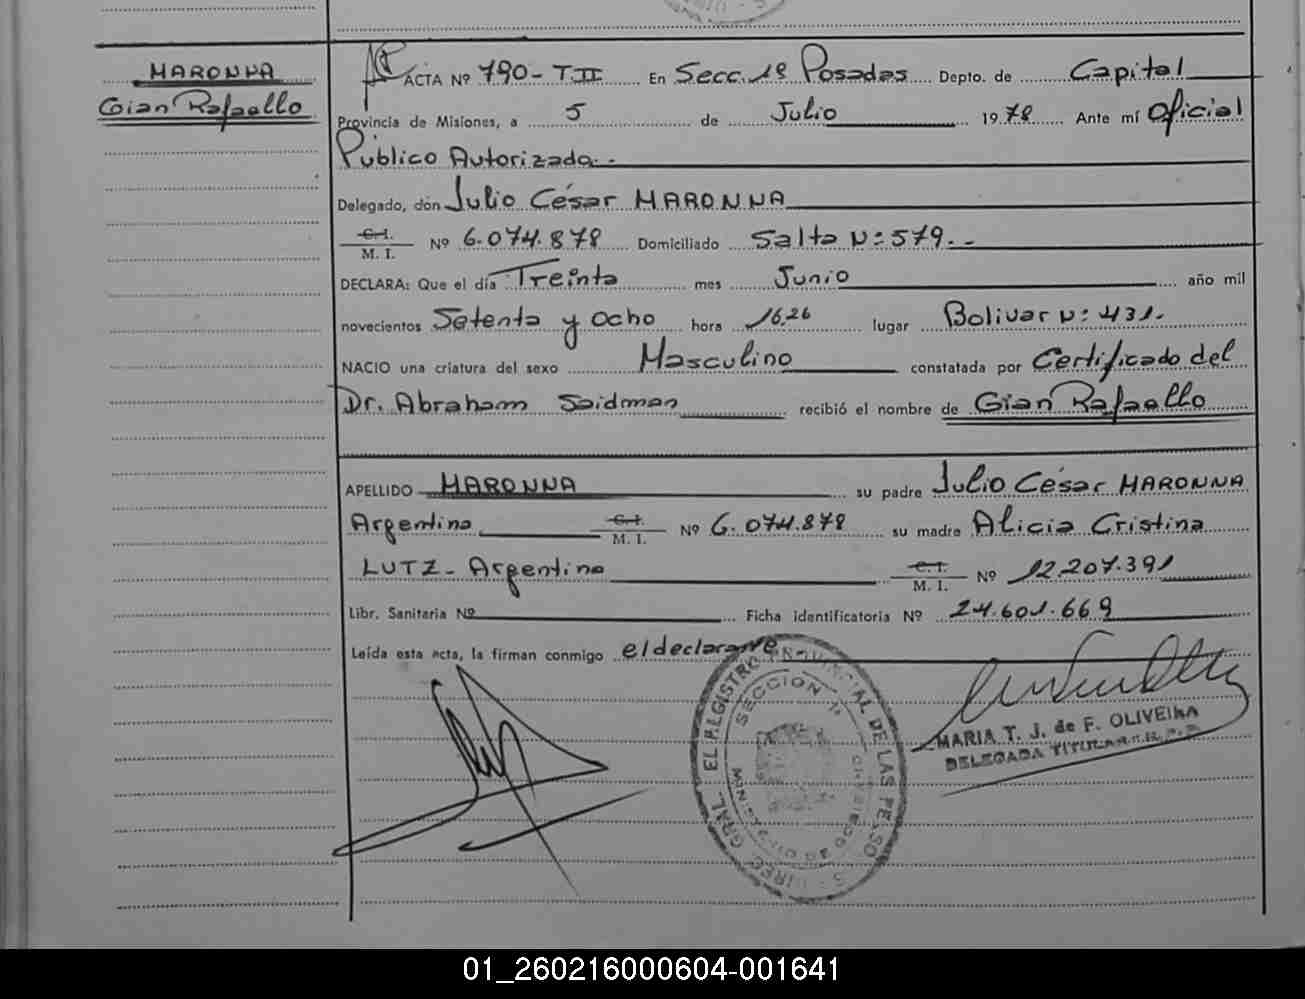 MARONNA
Gian Rafaello
ACTA Nº 790 - T II En Secc. 1ª Posadas Depto. de Capital
Provincia de Misiones, a 5 de Julio 1978 Ante mí Oficial
Público Autorizada.-
Delegado, don Julio César MARONNA
C.I. M. I. Nº 6.074.878 Domiciliado Salta Nº 579.-
DECLARA: Que el día Treinta mes Junio año mil
novecientos Setenta y Ocho hora 16,26 lugar Bolivar Nº 431.
NACIO una criatura del sexo Masculino constatada por Certificado del
Dr. Abraham Saidman recibió el nombre de Gian Rafaello
APELLIDO MARONNA su padre Julio César MARONNA
Argentino C.I. M. I. Nº 6.074.878 su madre Alicia Cristina
LUTZ - Argentina C.I. M. I. Nº 12.207.391
Libr. Sanitaria Nº Ficha identificatoria Nº 24.601.669
Leída esta acta, la firman conmigo el declarante
DIREC. GRAL. EL REGISTRO PROVINCIAL DE LAS PERSO
SECCION 1ª
MARIA T. J. de F. OLIVEIRA
DELEGADA TITULAR R. P. P.
01_260216000604-001641